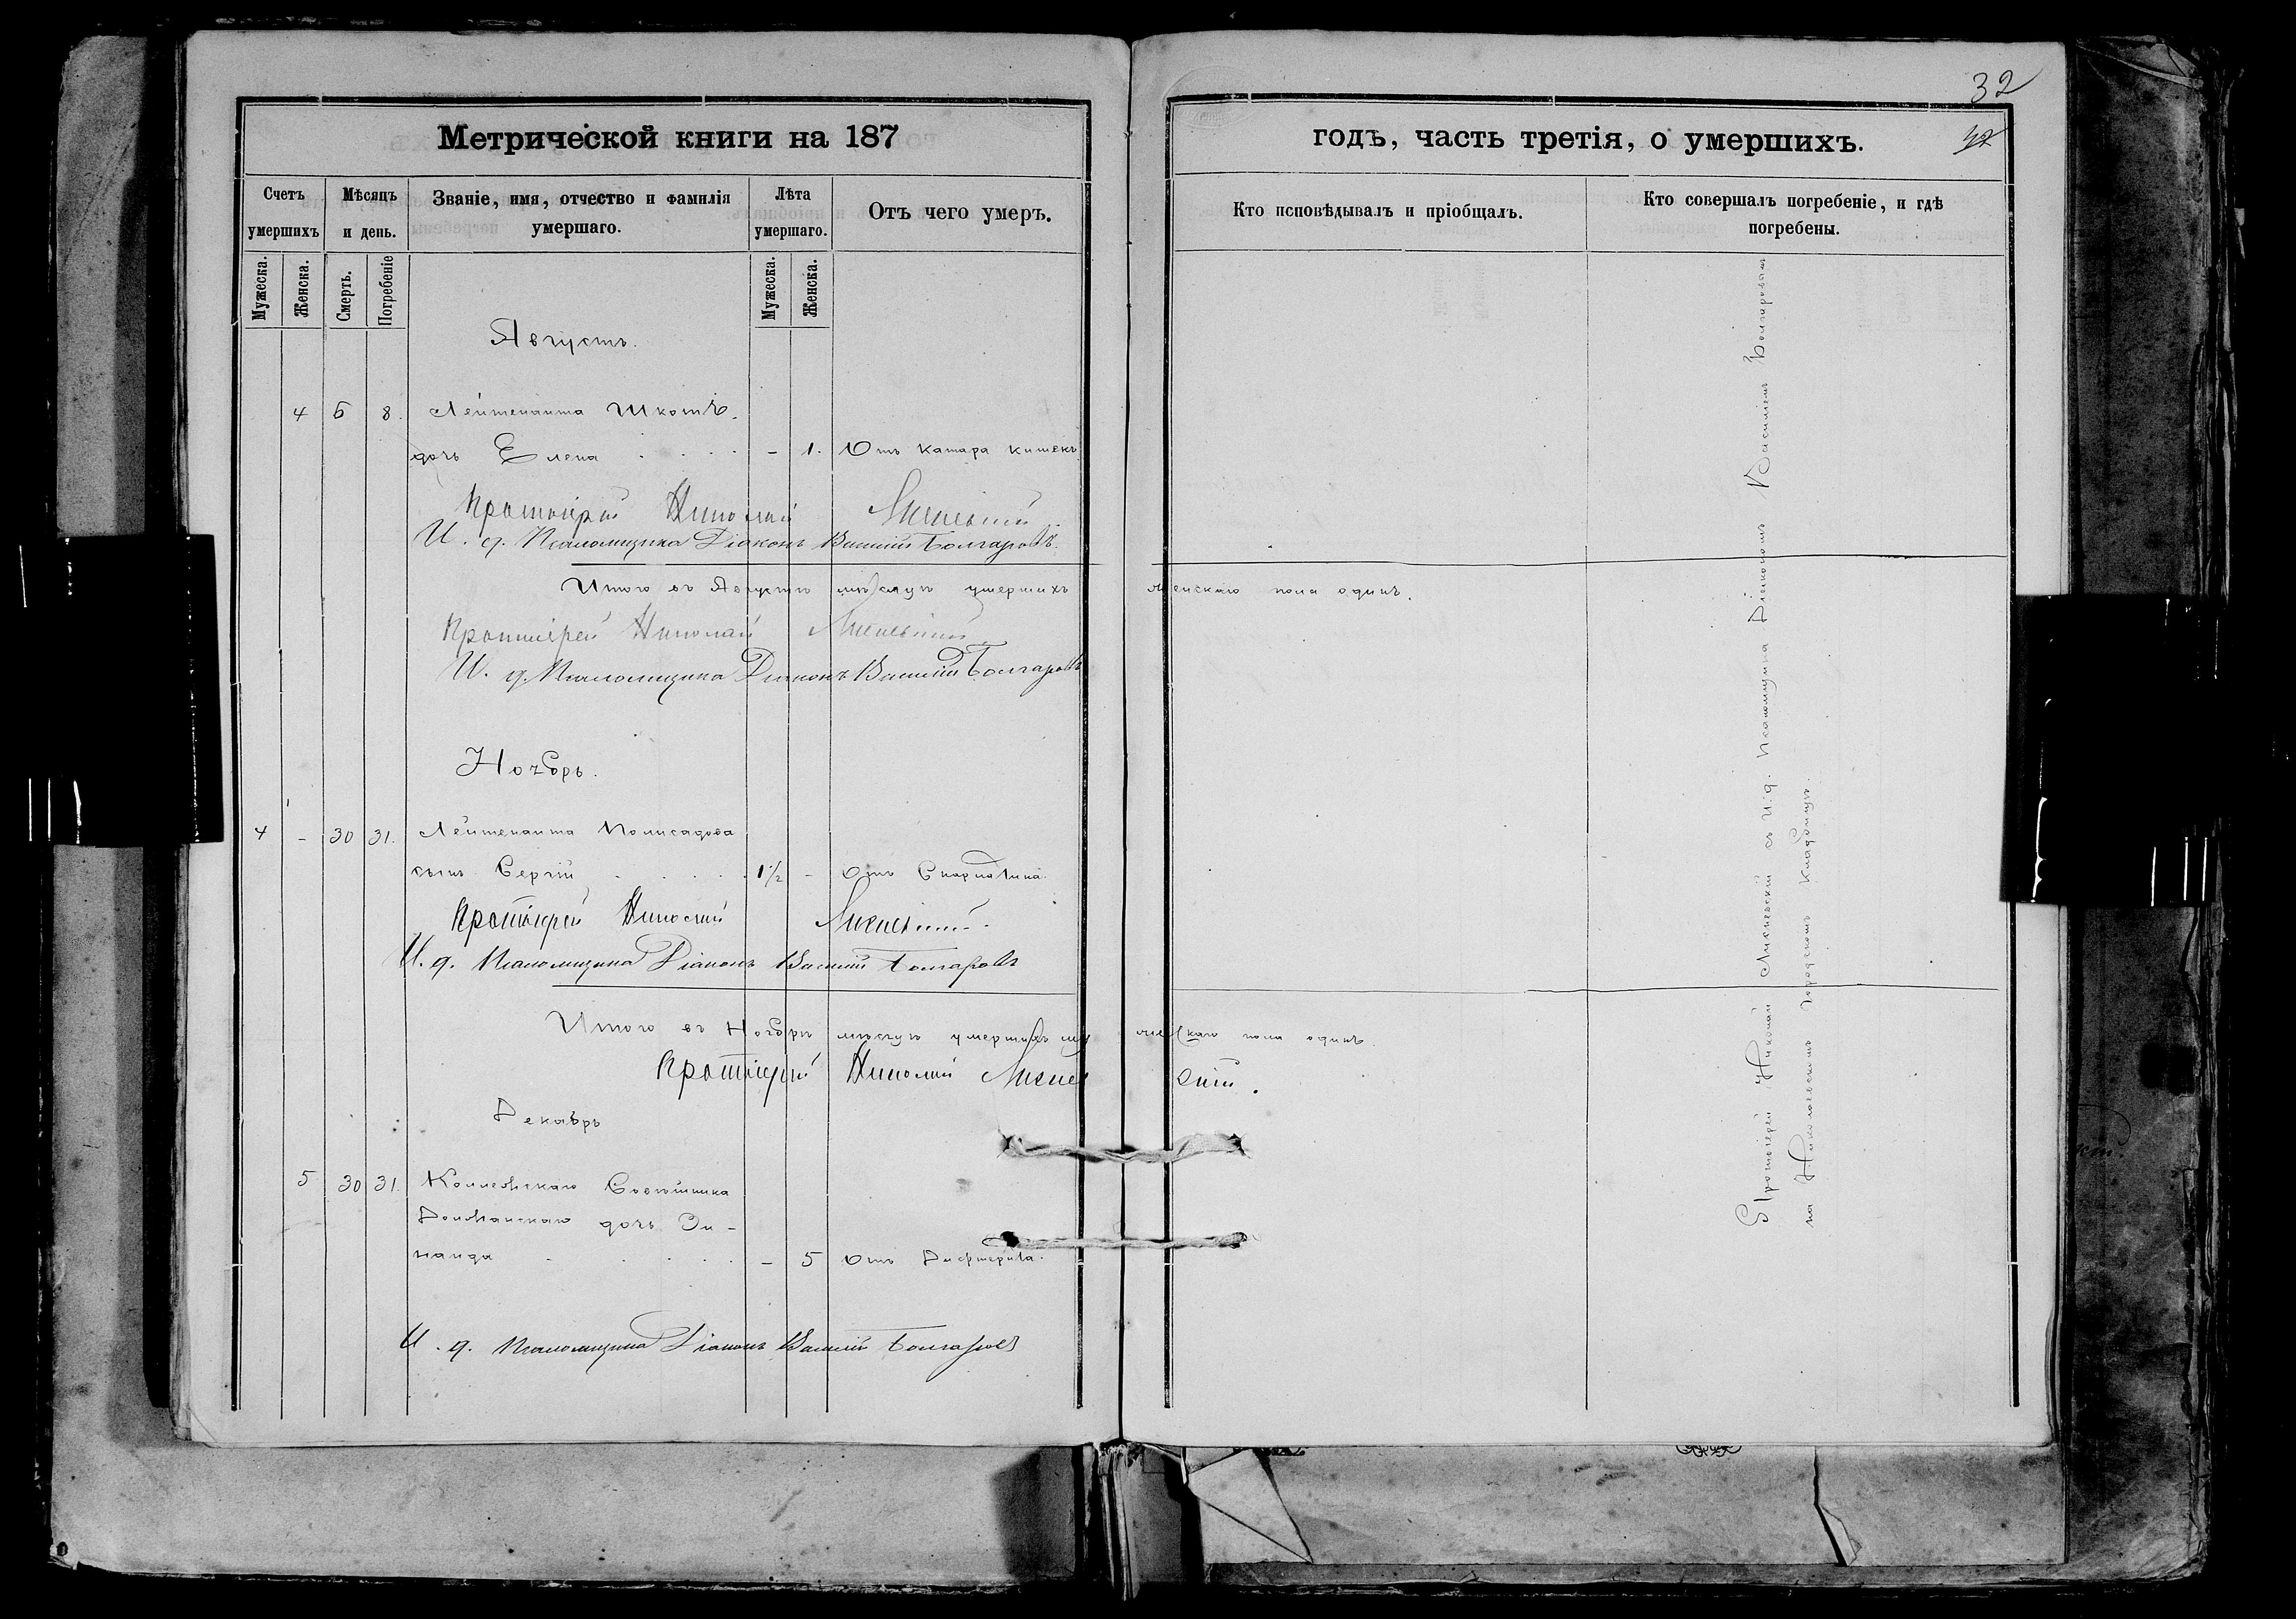 32
42
Метрической книги на 187 годъ, часть третія, о умершихъ.
Счетъ умершихъ
Мѣсяцъ и день.
Званіе, имя, отчество и фамилія умершаго.
Лѣта умершаго.
Отъ чего умеръ.
Кто исповѣдывалъ и пріобщалъ.
Кто совершалъ погребеніе, и гдѣ погребены.
Мужеска.
Женска.
Смерть.
Погребеніе
Мужеска.
Женска.
Августъ.
4 6 8. Лейтенанта Шкотъ.
дочь Елена - 1. Отъ катара кишекъ
Протоіерей Николай
И. д. Псаломщика Діаконъ Василій Болгаровъ.
Итого въ Августѣ мѣсяцѣ умершихъ женскаго пола одинъ.
Протоіерей Николай
И. д. Псаломщика Діаконъ Василій Болгаровъ
Ноябрь.
4 - 30 31. Лейтенанта Полисадова
сынъ Сергій 1½ - Отъ Скарлатина.
Протоіерей Николай
И. д. Псаломщика Діаконъ Василій Болгаровъ
Итого въ Ноябрѣ мѣсяцѣ умершихъ мужескаго пола одинъ.
Протоіерей Николай
Декабрь
5 30 31. Коллежскаго Совѣтника
дочь Зи-
наида - 5 Отъ Дифтерита.
И. д. Псаломщика Діаконъ Василій Болгаровъ
Протоіерей Николай съ и. д. Псаломщика Діакономъ Василіемъ Болгаровымъ
на Николаевскомъ городскомъ кладбищѣ.